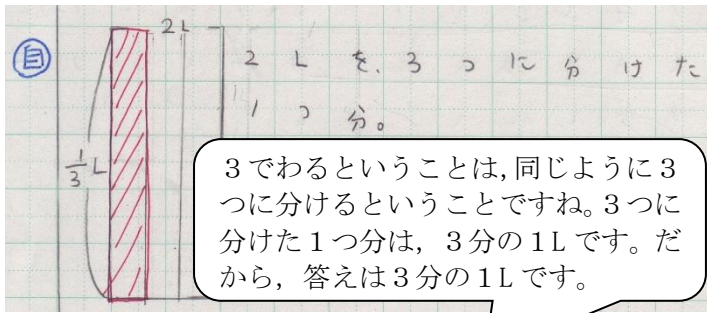 自
2L
2Lを、3つに分けた
1つ分。
1/3 L
３でわるということは，同じように３
つに分けるということですね。３つに
分けた１つ分は，３分の１Lです。だ
から，答えは３分の１Lです。